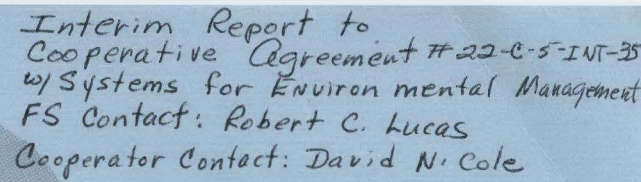 Interim Report to
Cooperative Agreement #22-C-5-INT-35
w/ Systems for Environmental Management
FS Contact: Robert C. Lucas
Cooperator Contact: David N. Cole